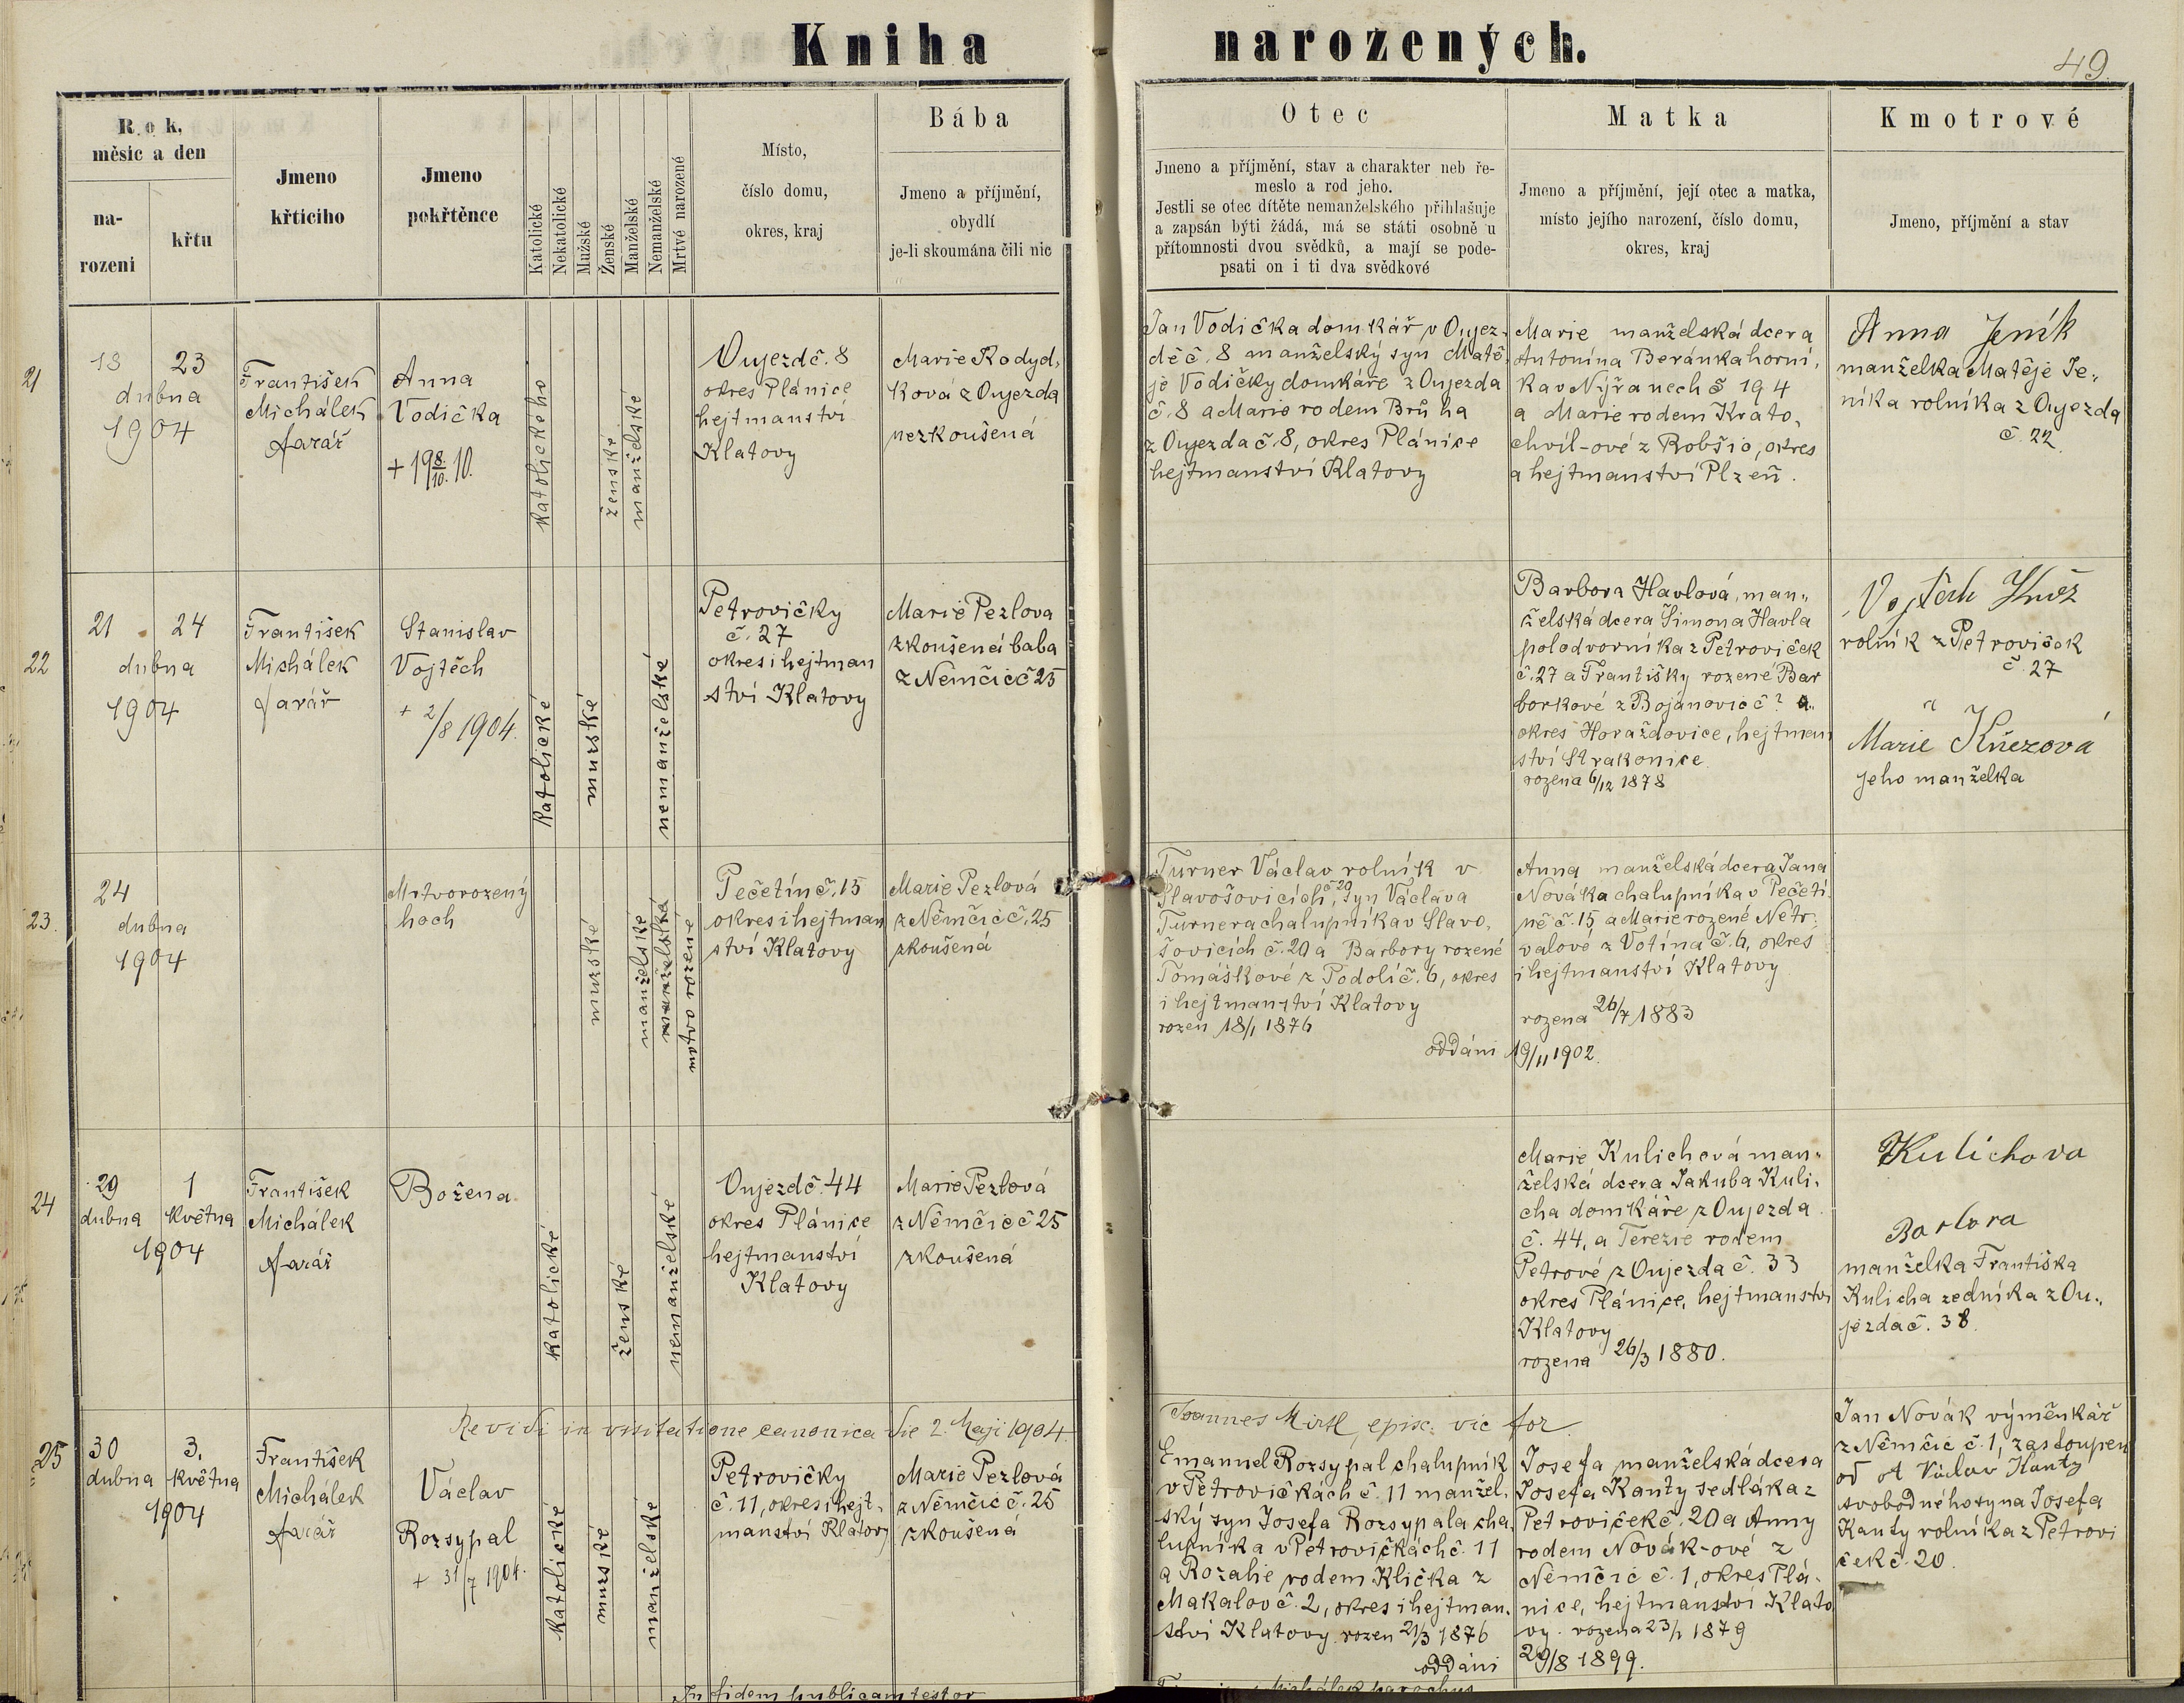 Kniha narozených.
49.
Rok,
měsíc a den
na-
rozeni
křtu
Jmeno
křtícího
Jmeno
pokřtěnce
Katolické
Nekatolické
Mužské
Ženské
Manželské
Nemanželské
Mrtvé narozené
Místo,
číslo domu,
okres, kraj
Bába
Jmeno a příjmění,
obydlí
je-li skoumána čili nic
Otec
Jmeno a příjmění, stav a charakter neb ře-
meslo a rod jeho.
Jestli se otec dítěte nemanželského přihlašuje
a zapsán býti žádá, má se státi osobně u
přítomnosti dvou svědků, a mají se pode-
psati on i ti dva svědkové
Matka
Jmeno a příjmění, její otec a matka,
místo jejího narození, číslo domu,
okres, kraj
Kmotrové
Jmeno, příjmění a stav
21
18 23
dubna
1904
František
Michálek
farář
Anna
Vodička
+ 19 8/10. 10.
katolického
ženské
manželské
Oujezd č. 8
okres Plánice
hejtmanství
Klatovy
Marie Kodyd,
ková z Oujezda
nezkoušená
Jan Vodička domkář v Oujez-
dě č. 8 manželský syn Matě-
je Vodičky domkáře z Oujezda
č. 8 a Marie rodem Brůha
z Oujezda č. 8, okres Plánice
hejtmanství Klatovy
Marie manželská dcera
Antonína Beránka horní,
ka v Nýřanech č 194
a Marie rodem Krato,
chvíl-ové z Robšic, okres
a hejtmanství Plzeň.
Anna Jeník
manželka Matěje Je„
níka rolníka z Oujezda
č. 22
22
21 24
dubna
1904
František
Michálek
farář
Stanislav
Vojtěch
+ 2/8 1904.
katolické
mužské
nemanželské
Petrovičky
č. 27
okres i hejtman
ství Klatovy
Marie Pezlova
zkoušená baba
z Němčic č 25
Barbora Havlová, man„
želská dcera Šimona Havla
polodvorníka z Petroviček
č. 27 a Františky rozené Bar
borkové z Bojanovic č ? a„
okres Horažďovice, hejtman
ství Strakonice
rozena 6/12 1878
Vojtěch Kněz
rolník z Petroviček
č. 27
a
Marie Kňezová
jeho manželka
23.
24
dubna
1904
Mrtvorozený
hoch
mužské
manželské
manželská
mrtvo rozené
Pečetín č. 15
okres i hejtman
ství Klatovy
Marie Pezlová
z Němčic č. 25
zkoušená
Turner Václav rolník v
Slavošovicích č 20, syn Václava
Turnera chalupníka v Slavo,
šovicích č. 20 a Barbory rozené
Tomáškové z Podolí č. 6, okres
i hejtmanství Klatovy
rozen 18/1 1876
oddáni 19/11 1902.
Anna manželská dcera Jana
Nováka chalupníka v Pečetí
ně č. 15 a Marie rozené Netr-
valové z Votína č. 6, okres
i hejtmanství Klatovy
rozena 26/7 1883
24
29 1
dubna května
1904
František
Michálek
farář
Božena
katolické
ženské
nemanželské
Oujezd č. 44
okres Plánice
hejtmanství
Klatovy
Marie Pezlová
z Němčic č 25
zkoušená
Marie Kulichová man„
želská dcera Jakuba Kuli,
cha domkáře z Oujezda
č. 44, a Terezie rodem
Petrové z Oujezda č. 33
okres Plánice, hejtmanství
Klatovy
rozena 26/3 1880.
Kulichova
Barbora
manželka Františka
Kulicha zedníka z Ou„
jezda č. 38.
Revidi in visitatione canonica die 2. Maji 1904. Joannes Mirtl, episc. vic for.
25
30 3.
dubna května
1904
František
Michálek
farář
Václav
Rozsypal
+ 31/7 1904.
katolické
mužské
manželské
Petrovičky
č. 11, okres i hejt„
manství Klatovy
Marie Pezlová
z Němčic č. 25
zkoušená
Emanuel Rozsypal chalupník
v Petrovičkách č. 11 manžel,
ský syn Josefa Rozsypala cha,
lupníka v Petrovičkách č. 11
a Rozalie rodem Klička z
Makalov č. 2, okres i hejtman,
ství Klatovy rozen 21/3 1876
oddáni 29/8 1899.
Josefa manželská dcera
Josefa Kanty sedláka z
Petroviček č. 20 a Anny
rodem Novák-ové z
Němčic č. 1, okres Plá-
nice, hejtmanství Klato
vy. rozena 23/1 1879
Jan Novák výměnkář
z Němčic č. 1, zastoupen
od Václav Kanty
svobodného syna Josefa
Kanty rolníka z Petrovi
ček č. 20.
In fidem publicam testor
Michálek parochus